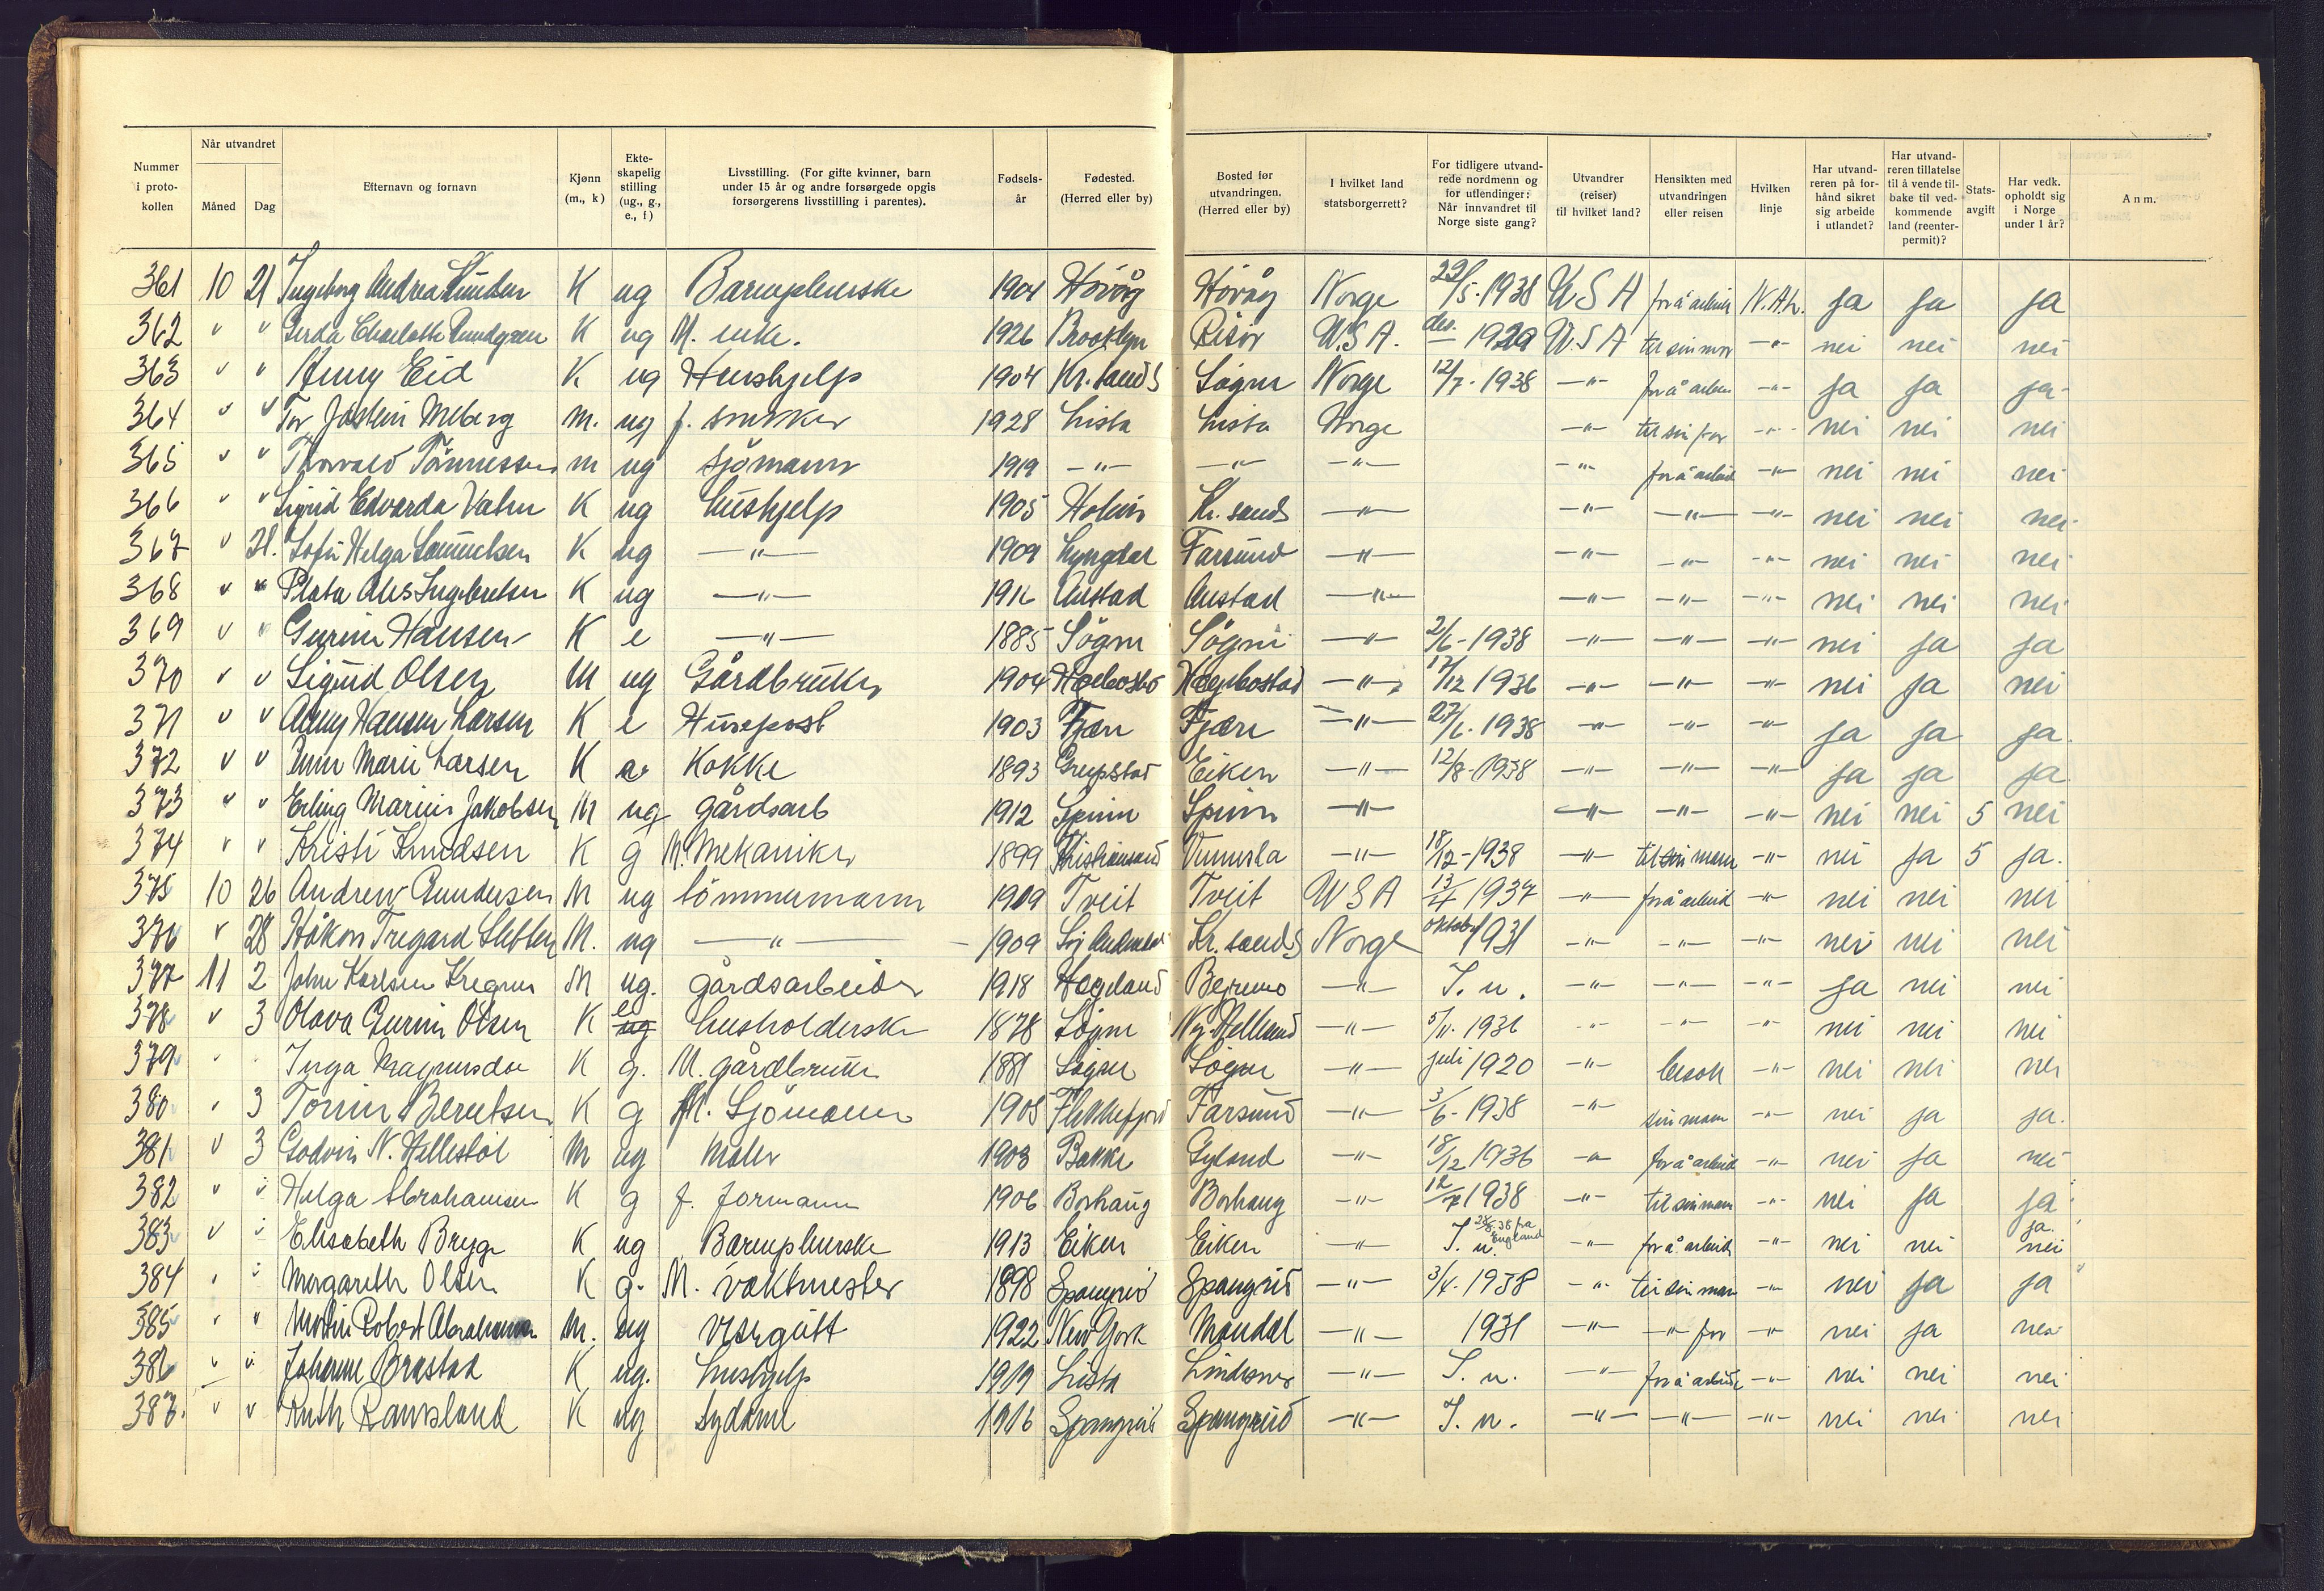 Nummer i proto- kollen | Når utvandret Måned Dag | Efternavn og fornavn | Kjønn (m., k) | Ekte- skapelig stilling (ug., g., e., f) | Livsstilling. (For gifte kvinner, barn under 15 år og andre forsørgede opgis forsørgerens livsstilling i parentes). | Fødsels- år | Fødested. (Herred eller by) | Bosted før utvandringen. (Herred eller by) | I hvilket land statsborgerrett? | For tidligere utvand- rede nordmenn og for utlendinger: Når innvandret til Norge siste gang? | Utvandrer (reiser) til hvilket land? | Hensikten med utvandringen eller reisen | Hvilken linje | Har utvand- reren på for- hånd sikret sig arbeide i utlandet? | Har utvand- reren tillatelse til å vende til- bake til ved- kommende land (reenter- permit)? | Stats- avgift | Har vedk. opholdt sig i Norge under 1 år? | Anm.
361 10 21 Ingeborg Andrea K ug Barnepleierske 1904 Høvåg Høvåg Norge 29/5-1938 USA for å arbeide N.A.L. ja ja ja
362 " " Gerda Charlotte Rundgren K ug M. enke. 1926 Brooklyn Risör U.S.A. des. 1929 U.S.A til sin mor -"- nei nei nei
363 " " Henny Eid K ug Hushjelp 1904 Kr.sands Sögne Norge 12/7-1938 -"- for å arbeide -"- ja ja ja
364 " " Tor Jostein Meberg M. ug f. snekker 1928 Lista Lista Norge -"- til sin far -"- nei nei nei
365 " " Thorvald Tönnessen m ug sjömann 1919 -"- -"- -"- -"- for å arbeid -"- nei nei nei
366 " " Sigrid Edvarda K ug hushjelp 1905 Kr. sands -"- -"- -"- -"- nei nei nei
367 " 21. Sofie Helga Samuelsen K ug -"- 1909 Lyngdal Farsund -"- -"- -"- -"- nei nei nei
368 " " Ingebretsen K ug -"- 1911 Austad Austad -"- -"- -"- -"- nei nei nei
369 " " Gurine Hansen K e -"- 1885 Sögne Sögne -"- 2/6-1938 -"- -"- -"- nei ja ja
370 " " Sigurd Olsen M ug Gårdbruker 1904 Hægebostad Hægebostad -"- 17/12 1936 -"- -"- -"- nei ja nei
371 " " Hansen Larsen K e Husepost 1903 Fjære Fjære -"- 27/6-1938 -"- -"- -"- ja ja ja
372 " " Marie Larsen K Kokke 1893 Eiken -"- 12/8-1938 -"- -"- -"- ja ja ja
373 " " Erling Marius Jakobsen M ug gårdsarb 1912 Spinn Spinn -"- -"- -"- -"- nei nei 5 nei
374 " " Kristi Knudsen K g M. Mekaniker 1899 Kristiansand Vennesla -"- 18/12-1938 -"- til sin mann -"- nei ja 5 ja.
375 10 26 Andrew Gundersen M ug tömmermann 1909 Tveit Tveit USA 13/4 1937 -"- for å arbeid -"- nei nei nei
376 " 28 Håkon Tregard Sletten M. ug -"- 1909 Kr. sands Norge oktober 1931 -"- -"- -"- nei nei nei
377 11 2 John Karlsen M ug. gårdsarbeider 1918 Hægeland -"- I. u. -"- -"- -"- ja nei nei
378 " 3 Olava Gurine Olsen K e ug husholderske 1878 Sögne -"- 5/11-1936 -"- -"- -"- nei nei nei
379 " " Inga K g. M. gårdbruker 1881 Sögne Sögne -"- juli 1920 -"- besök -"- nei nei nei
380 " 3 Berntsen K g M. Sjömann 1905 Flekkefjord Farsund -"- 3/6-1938 -"- sin mann -"- nei ja ja.
381 " 3 Godvin N. Hellestöl M ug Maler 1903 Bakke Gyland -"- 18/12 1936 -"- for å arbeid -"- nei ja nei
382 " " Helga Abrahamsen K g f. formann 1906 Borhaug Borhaug -"- 12/7 1938 -"- til sin mann -"- nei ja ja
383 " " Elisabeth Bryge K ug Barnepleierske 1913 Eiken Eiken -"- I. u. 38 fra England -"- for å arbeide -"- nei nei ja. nei
384 " " Margareth Olsen K g. M. vaktmester 1898 Spangereid Spangereid -"- 1938 -"- til sin mann -"- nei ja ja
385 " " Robert Abrahamsen M. ug visergutt 1922 New York Mandal -"- 1931 -"- -"- far -"- nei ja nei
386 " " Johanne Brastad K ug. hushjelp 1919 Lista Lindesnes -"- I. u. -"- for å arbeide -"- nei nei nei
387. " " Ruth Ramsland K ug sydame 1916 Spangereid Spangereid -"- I. u. -"- -"- -"- nei nei nei